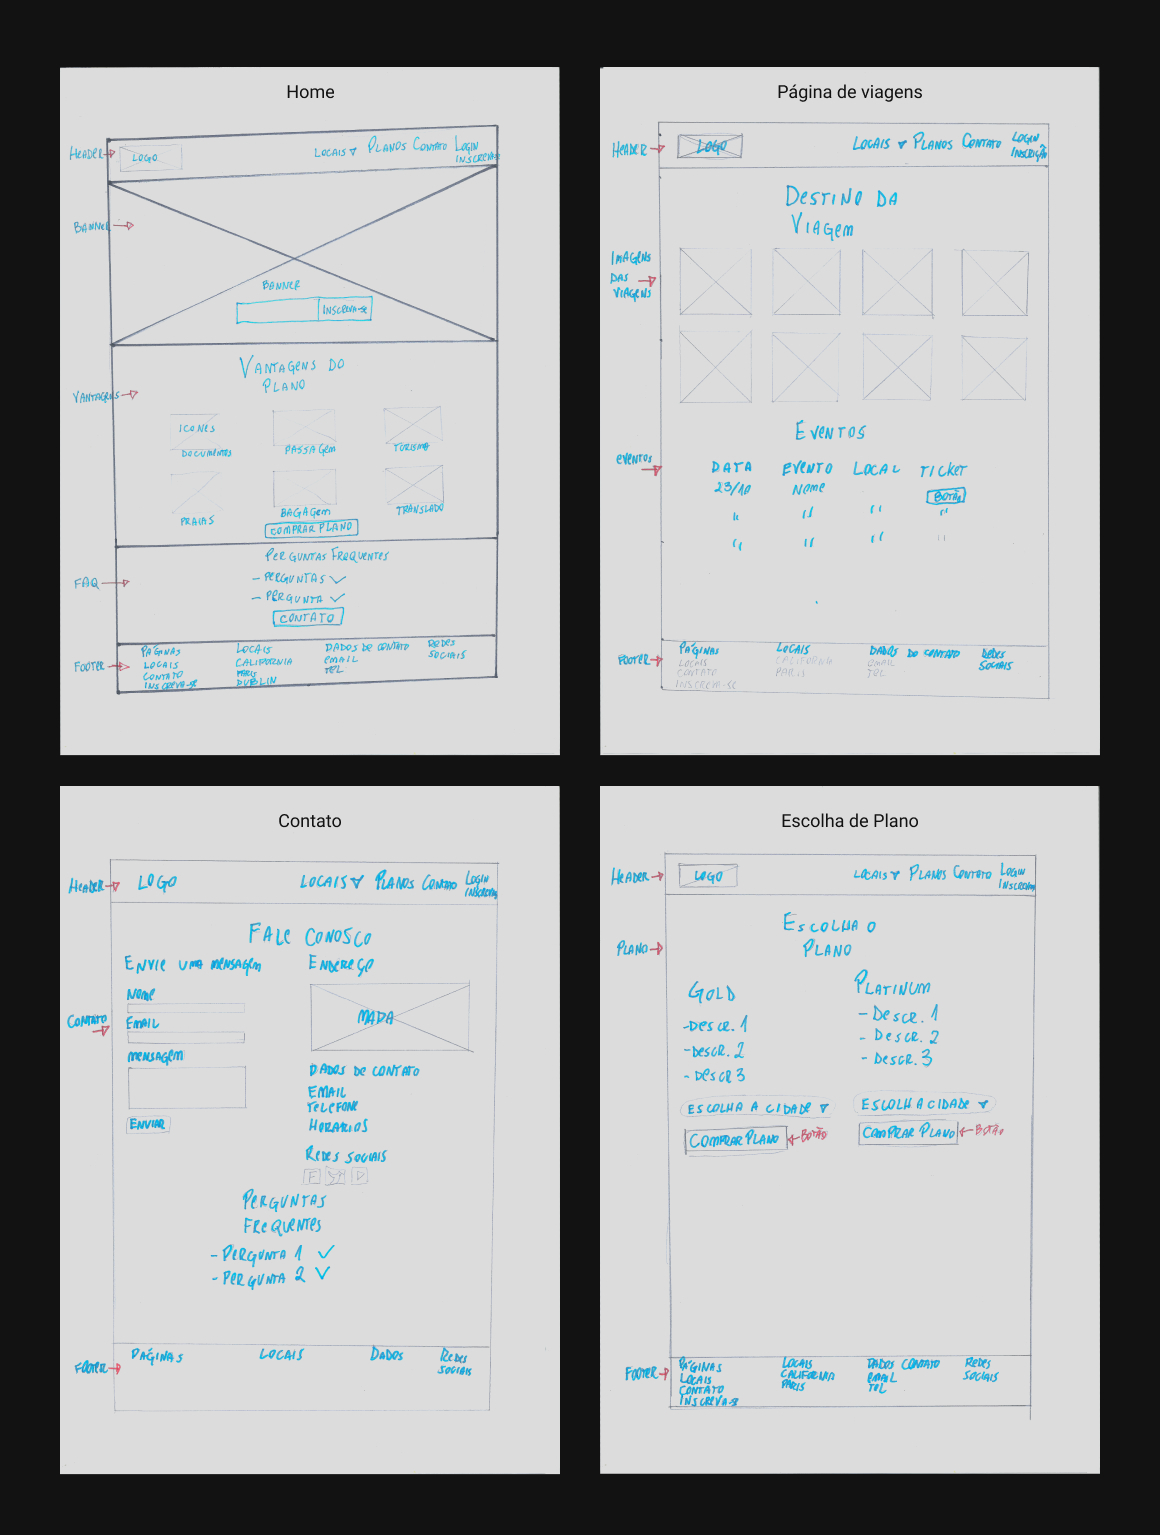 Home
HEADER
LOGO
LOCAIS PLANOS CONTATO LOGIN
INSCREVA-SE
BANNER
BANNER
INSCREVA-SE
VANTAGENS DO
PLANO
VANTAGENS
ICONES
DOCUMENTOS PASSAGEM TURISMO
PRAIAS BAGAGEM TRANSLADO
COMPRAR PLANO
PERGUNTAS FREQUENTES
FAQ
- PERGUNTAS
- PERGUNTA
CONTATO
FOOTER
PÁGINAS LOCAIS DADOS DE CONTATO REDES
LOCAIS CALIFORNIA EMAIL SOCIAIS
CONTATO PARIS TEL
INSCREVA-SE DUBLIN
Página de viagens
HEADER
LOGO
LOCAIS PLANOS CONTATO LOGIN
INSCRIÇÃO
DESTINO DA
VIAGEM
IMAGENS
DAS
VIAGENS
EVENTOS
EVENTOS
DATA EVENTO LOCAL TICKET
23/10 NOME BOTÃO
" " " "
" " " "
FOOTER
PÁGINAS LOCAIS DADOS DO CONTATO REDES
LOCAIS CALIFORNIA EMAIL SOCIAIS
CONTATO PARIS TEL
INSCREVA-SE
Contato
HEADER
LOGO
LOCAIS PLANOS CONTATO LOGIN
INSCREVA
FALE CONOSCO
ENVIE UMA MENSAGEM
ENDEREÇO
NOME
CONTATO
EMAIL
MENSAGEM
ENVIAR
MAPA
DADOS DE CONTATO
EMAIL
TELEFONE
HORARIOS
REDES SOCIAIS
F
PERGUNTAS
FREQUENTES
- PERGUNTA 1
- PERGUNTA 2
FOOTER
PÁGINAS LOCAIS DADOS REDES
SOCIAIS
Escolha de Plano
HEADER
LOGO
LOCAIS PLANOS CONTATO LOGIN
INSCREVA
PLANO
ESCOLHA O
PLANO
GOLD
- DESCR. 1
- DESCR. 2
- DESCR 3
ESCOLHA A CIDADE
COMPRAR PLANO
BOTÃO
PLATINUM
- DESCR. 1
- DESCR. 2
- DESCR. 3
ESCOLHA CIDADE
COMPRAR PLANO
BOTÃO
FOOTER
PÁGINAS LOCAIS DADOS CONTATO REDES
LOCAIS CALIFORNIA EMAIL SOCIAIS
CONTATO PARIS TEL
INSCREVA-SE